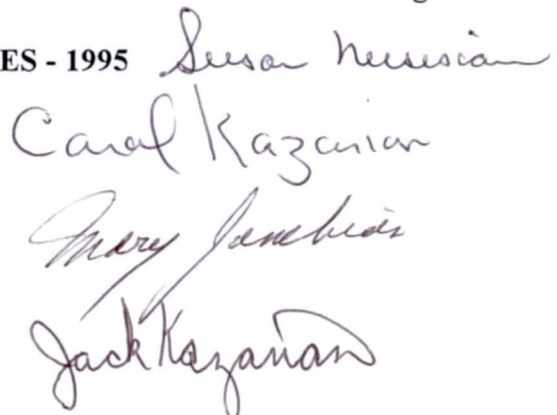 ES - 1995 Susan Nersesian
Carol Kazarian
Mary
Jack Kazarian